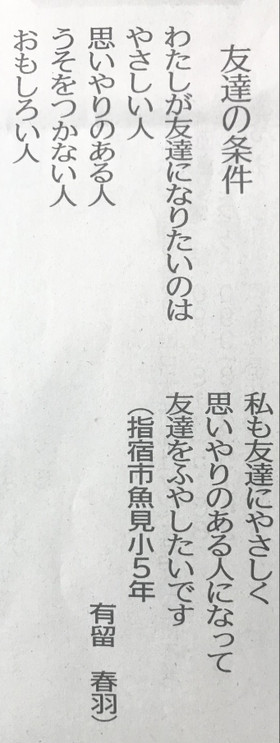 友達の条件
わたしが友達になりたいのは
やさしい人
思いやりのある人
うそをつかない人
おもしろい人
私も友達にやさしく
思いやりのある人になって
友達をふやしたいです
(指宿市魚見小5年
有留　春羽)